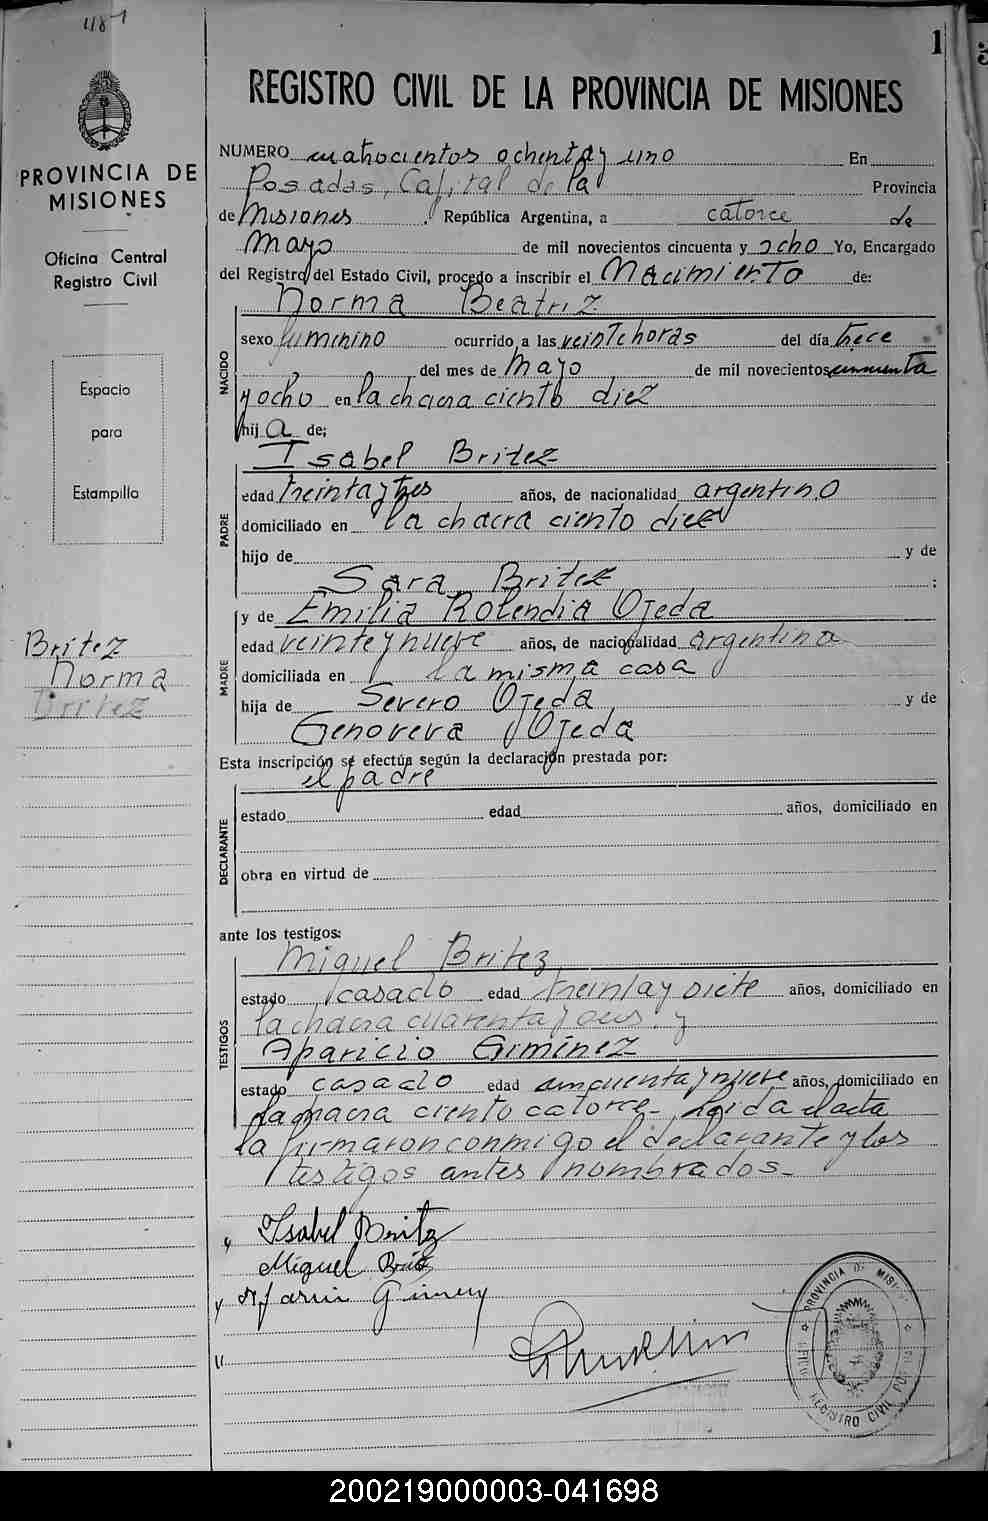 481
1
PROVINCIA DE
MISIONES
Oficina Central
Registro Civil
Espacio
para
Estampilla
Britez
Norma
Britez
REGISTRO CIVIL DE LA PROVINCIA DE MISIONES
NUMERO cuatrocientos ochenta y uno En
Posadas, Capital de la Provincia
de Misiones. República Argentina, a catorce de
Mayo de mil novecientos cincuenta y ocho Yo, Encargado
del Registro del Estado Civil, procedo a inscribir el Nacimiento de:
Norma Beatriz
NACIDO
sexo femenino ocurrido a las veinte horas del día trece
del mes de Mayo de mil novecientos cincuenta
y ocho en la chacra ciento diez
hija de:
Isabel Britez
PADRE
edad treinta y tres años, de nacionalidad argentino
domiciliado en la chacra ciento diez
hijo de y de
Sara Britez :
y de Emilia Rolendia Ojeda
MADRE
edad veinte y nueve años, de nacionalidad argentina
domiciliada en la misma casa
hija de Severo Ojeda y de
Genoveva Ojeda
Esta inscripción se efectúa según la declaración prestada por:
el padre
DECLARANTE
estado edad años, domiciliado en
obra en virtud de
ante los testigos:
Miguel Britez
TESTIGOS
estado casado edad treinta y siete años, domiciliado en
la chacra cuarenta y y
Aparicio Giminez
estado casado edad cincuenta y nueve años, domiciliado en
la chacra ciento catorce - Leida el acta
la firmaron conmigo el declarante y los
testigos antes nombrados -
Isabel Britez
Miguel Britez
PROVINCIA DE MISIONES
REGISTRO CIVIL
200219000003-041698